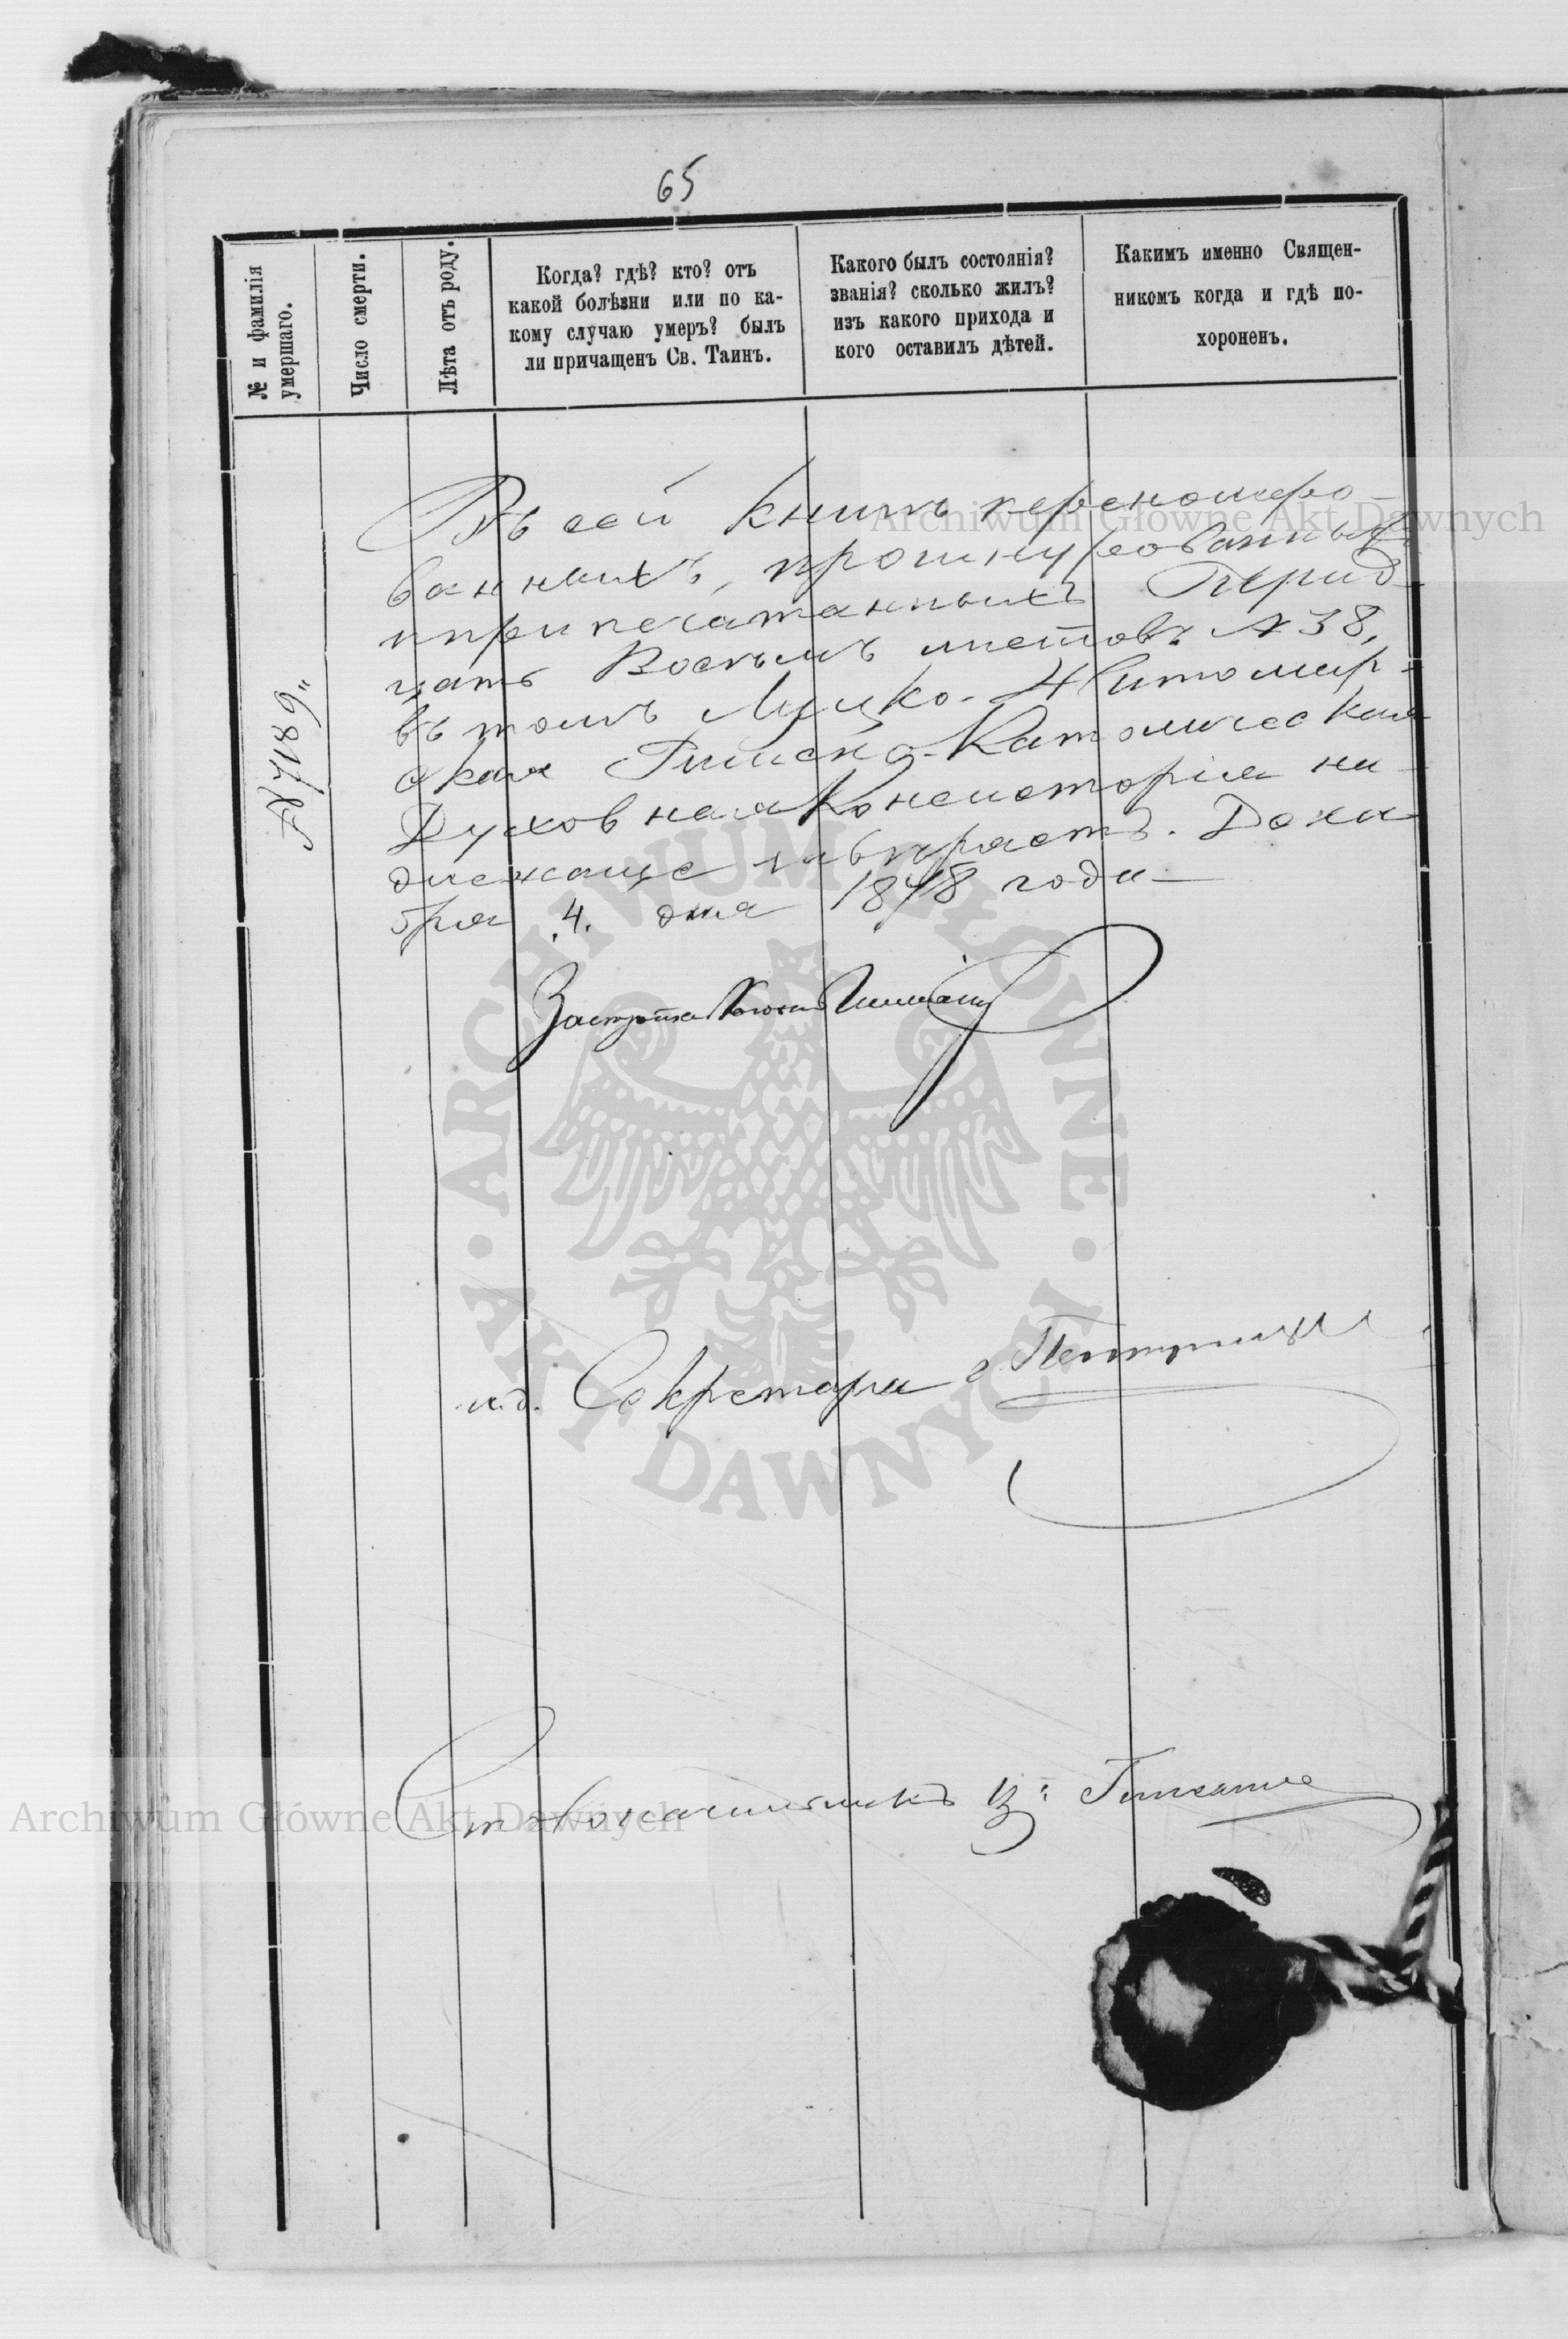 65
№ и фамилія
умершаго.
Число смерти.
Лѣта отъ роду.
Когда? гдѣ? кто? отъ
какой болѣзни или по ка-
кому случаю умеръ? былъ
ли причащенъ Св. Таинъ.
Какого былъ состоянія?
званія? сколько жилъ?
изъ какого прихода и
кого оставилъ дѣтей.
Какимъ именно Священ-
никомъ когда и гдѣ по-
хороненъ.
Въ сей книгѣ перенумеро-
ванныхъ, прошнурованныхъ
и припечатанныхъ Трид-
цать Восемь листовъ № 38,
въ томъ Луцко-Житомир-
ская Римско-Католическая
Духовная Консисторія на-
длежаще свѣряетъ. Дека
бря 4. дня 1878 года
№ 7189
и.д. Секретаря
Столоначальникъ
Archiwum Główne Akt Dawnych
Archiwum Główne Akt Dawnych
ARCHIWUM GŁÓWNE
AKT DAWNYCH